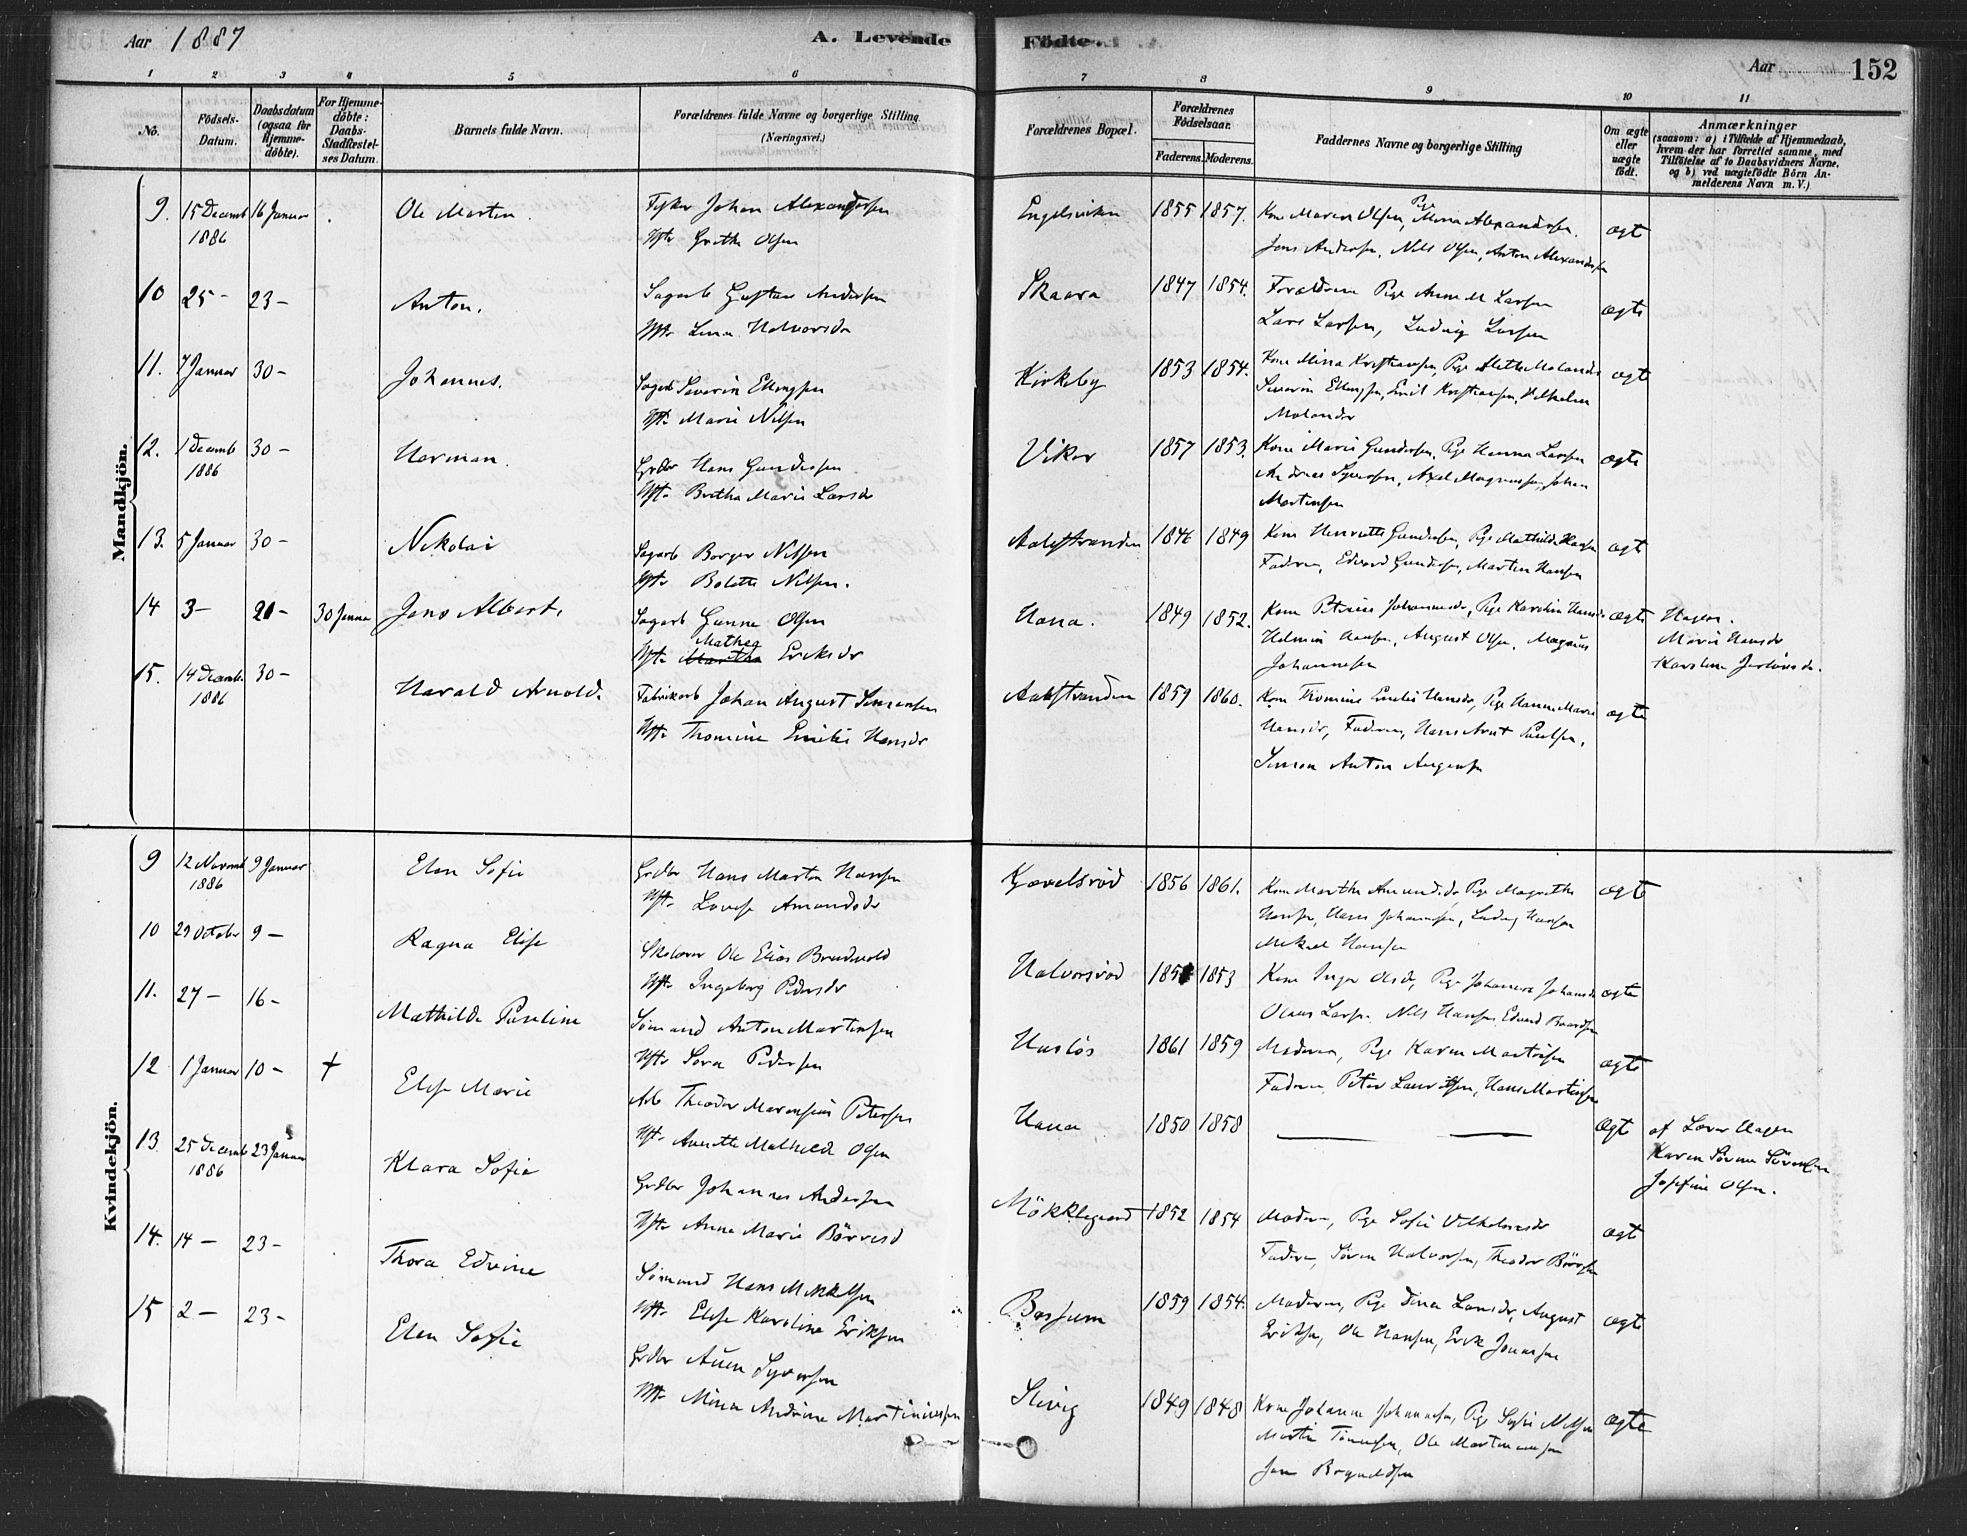 Aar 1887
A. Levende
Födte.
Aar
152
1 2 3 4 5 6 7 8 9 10 11
No.
Födsels-Datum.
Daabsdatum (ogsaa for Hjemme-döbte).
For Hjemme-döbte: Daabs-Stadfæstel-ses Datum.
Barnets fulde Navn.
Forældrenes fulde Navne og borgerlige Stilling (Næringsvei.)
Forældrenes Bopæl.
Forældrenes Födselsaar.
Faderens. Moderens.
Faddernes Navne og borgerlige Stilling
Om ægte eller uægte födt.
Anmærkninger
(saasom: a) i Tilfælde af Hjemmedaab,
hvem der har forrettet samme, med
Tilföielse af to Daabsvidners Navne,
og b) ved uægtefödte Börn An-
melderens Navn m. V.)
Mandkjön.
9. 15 Decemb 1886 16 Januar Ole Martin
Johan Alexandersen
Hst. Grethe Olsen
Engelsviken 1855 1857. Kone Maren Olsen, Pige Mina Alexandersen.
Jens Andersen, Nils Olsen, Anton Alexandersen
ægt
10 25 - 23 - Anton.
Sagarb Gustav Andersen
Hst. Lina Halvorsdr
Skaara 1847 1854. Forældrene Pige Anne M Larsen
Lars Larsen, Ludvig Larsen
ægte
11. 7 Januar 30 - Johannes.
Sagarb Severin Ellingsen
Hst. Marie Nilsen
Kirkeby 1853 1854. Kone Mina Kristiansen, Pige
Severin Ellingsen, Emil Kristiansen, Vilhelm
Molander
ægt
12. 1 Decemb 1886 30 - Herman.
Grdbr Hans Gundersen
Hst. Berthe Marie Larsdr
Viker 1857 1853. Kone Marie Gundersen, Pige Hanna Larsen
Andreas Syversen, Axel Magnussen, Johan
Martinsen
ægte
13. 5 Januar 30 - Nikolai
Sagarb Borger Nilsen
Hst. Bolette Nilsen.
Aalestranden 1846 1849 Kone Henriette Gundersen, Pige Mathilde Hansen
Faderen, Edvard Gundersen, Martin Hansen
ægt
14 3 - 21 - 30 Janua Jens Albert.
Sagarb Gunne Olsen
Hst. Mathea Eriksdr
Hana. 1849 1852. Kone Petrine Johannesdr, Pige Karoline Hansdr
Hansen, August Olsen, Magnus
Johannesen
ægte
Hagen.
Marie Hansdr
15. 14 Decemb. 1886 30 - Harald Arnold.
Fabrikarb Johan August Simensen
Hst. Thomine Emilie Hansdr
Aalestranden 1859 1860. Kone Thomine Emilie Hansdr, Pige Hanne Marie
Hansdr, Faderen, Hans Arnt Paulsen,
Simen Anton
ægte
Kvindekjön.
9 12 Novemb 1886 9 Januar Elen Sofie
Grdbr Hans Martin Hansen
Hst. Lovise Amundsdr
Kjævelsröd 1856 1861. Kone Marthe Amundsdr Pige Magrethe
Hansen, Hans Johannesen, Ludvig Hansen
Mikael Hansen
ægt
10 29 October 9 - Ragna Elise
Skolærer Ole Elias Brudvold
Hst. Ingeborg Pedersdr
Halvorsröd 1853 Kone Inger Olsdr, Pige Johanne Johansdr
Olaus Larsen. Nils Hansen, Edvard
ægte
11. 27 - 16 - Mathilde Pauline
Sömand Anton Martinsen
Hst. Sara Pedersen
Husløs 1861 1859 Moderen, Pige Karen Martinsen
Faderen, Peter Lauritsen, Hans Martinsen
ægte
12 1 Januar 10 - + Elise Marie
Arb Theodor Marensius Petersen
Hst. Annette Mathilde Olsen
Hana 1850 1858 — —
ægt
af Lærer Hagen
Karen
Josefine Olsen.
13. 25 Decemb 1886 23 Januar Klara Sofie
Grdbr Johannes Andersen
Hst. Anna Marie
Mökklegaard 1852 1854 Moderen, Pige Sofie Vilhelmsdr
Faderen, Sören Halvorsen, Theodor
ægt
14. 14 - 23 - Thora Edvine
Sömand Hans Mikkelsen
Hst. Elise Karoline Eriksen
1859 1854. Moderen, Pige Dina Larsdr, August
Eriksen, Ole Hansen, Erik Jonassen
ægte
15 2 - 23 - Elen Sofie
Grdbr Syversen
Hst. Mina Andrine Martiniussen
Slivig 1849 1848 Kone Johanne Johannesen, Pige Sofie Nilsen
Martin Tönnesen, Ole Martinsen
ægte